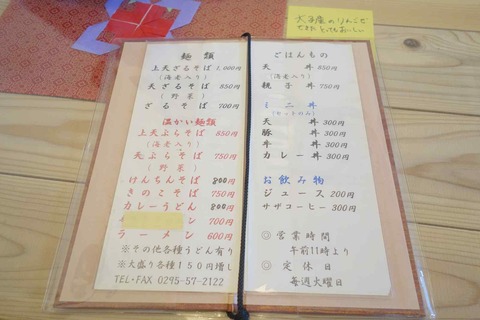 麺類
上天ざるそば 1,000円
(海老入り)
天ざるそば 850円
(野菜)
ざるそば 700円
温かい麺類
上天ぷらそば 850円
(海老入り)
天ぷらそば 750円
(野菜)
けんちんそば 800円
きのこそば 750円
カレーうどん 800円
ン 700円
ラーメン 600円
※その他各種うどん有り
※大盛り各種150円増し
TEL・FAX 0295-57-2122
ごはんもの
天丼 850円
(海老入り)
親子丼 750円
ミニ丼
(セットのみ)
天丼 300円
豚丼 300円
牛丼 300円
カレー丼 300円
お飲み物
ジュース 200円
サザコーヒー 300円
◎営業時間
午前11時より
◎定休日
毎週火曜日